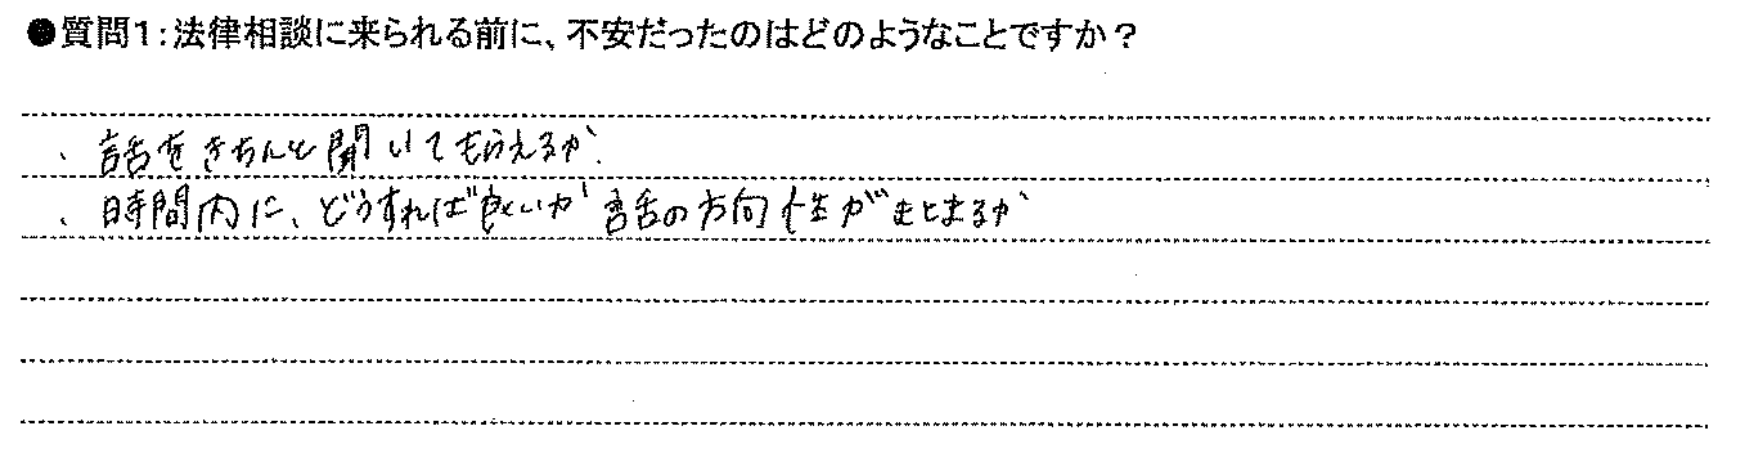 ●質問1:法律相談に来られる前に、不安だったのはどのようなことですか?
、話をきちんと聞いてもらえるか.
、時間内に、どうすれば良いか話の方向性がまとまるか